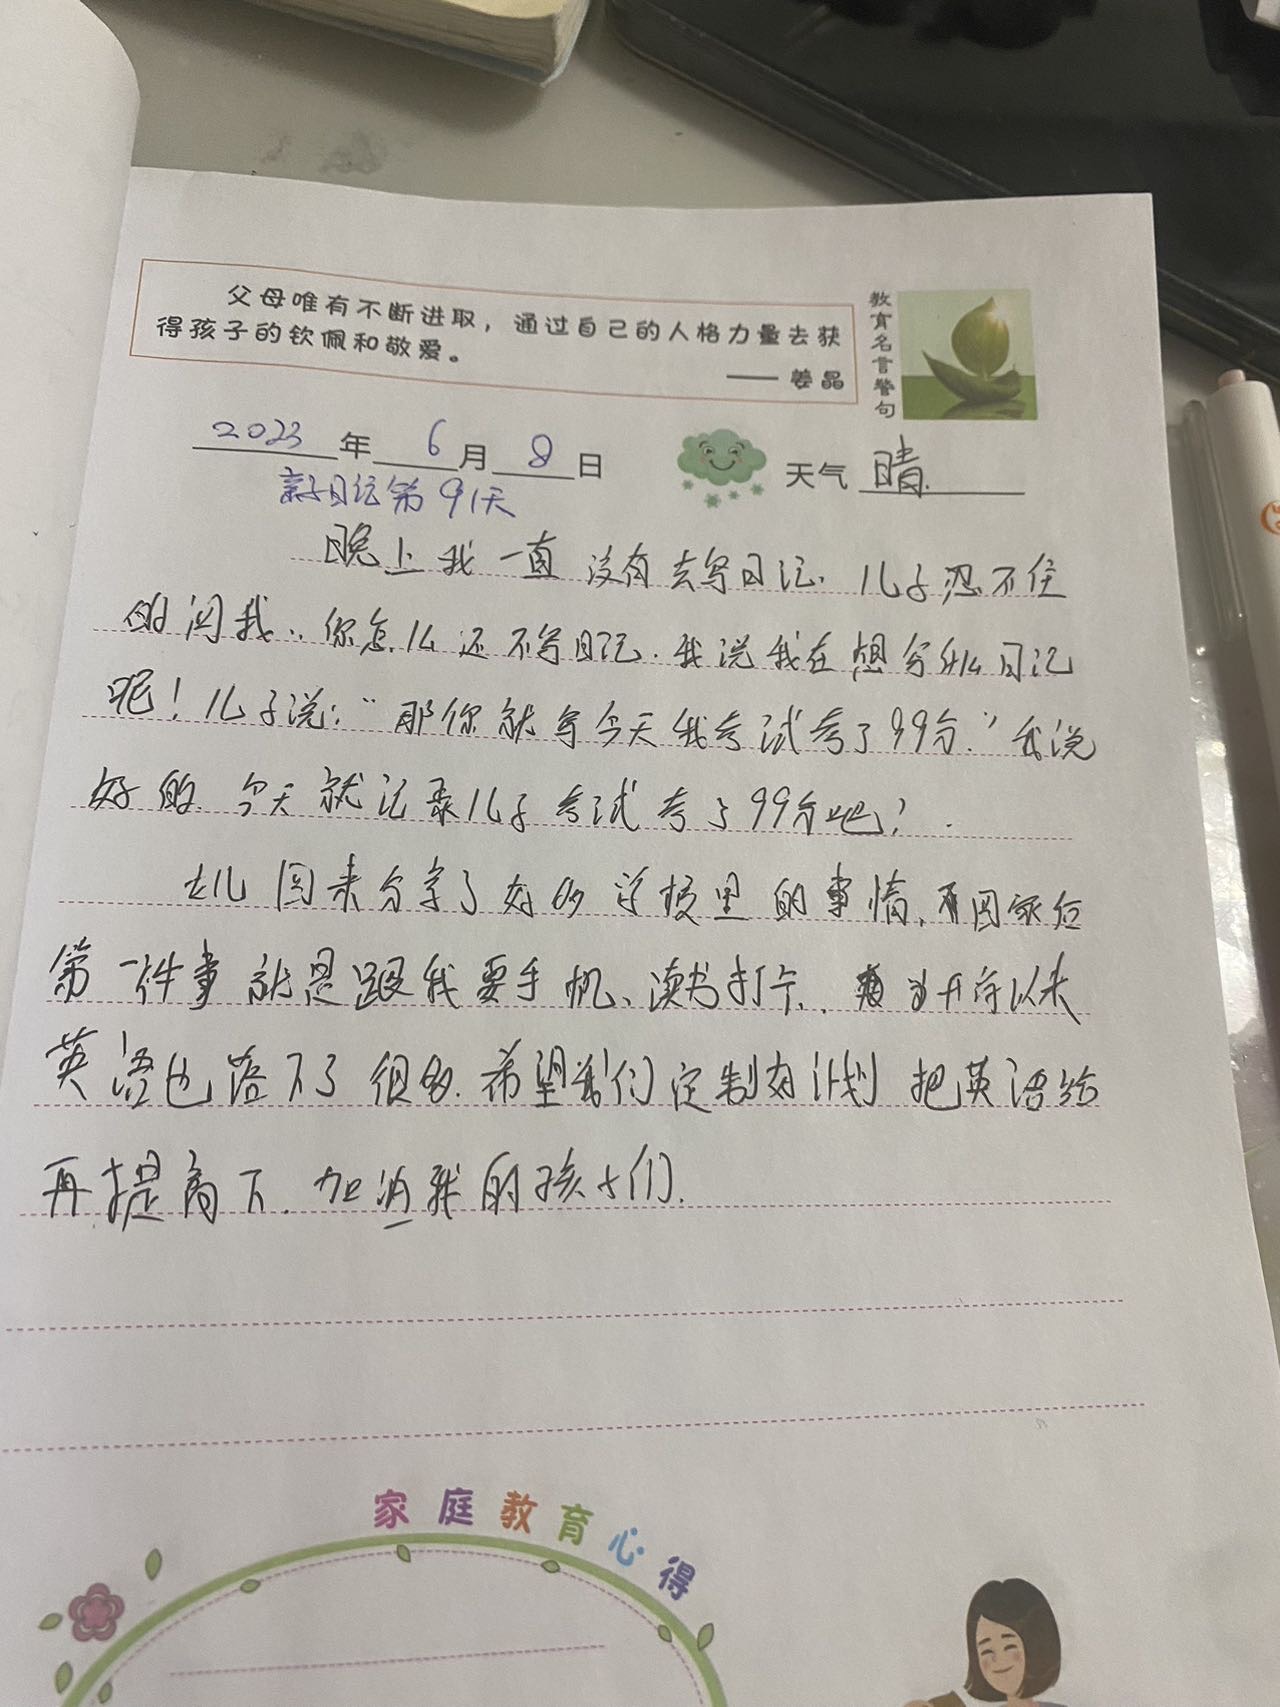 父母唯有不断进取，通过自己的人格力量去获
得孩子的钦佩和敬爱。
—— 姜晶
教育名言警句
2023年6月8日
天气 晴
亲子日记第91天
晚上我一直没有去写日记. 儿子忍不住
的问我.. 你怎么还不写日记. 我说我在想写什么日记
呢! 儿子说: "那你就写今天我考试考了99分." 我说
好的. 今天就记录儿子考试考了99分吧!
女儿回来分享了好多学校里的事情, 回家后
第一件事就是跟我要手机、读书打卡.. 开学以来
英语也落下了很多. 希望我们定制好计划把英语给
再提高下. 加油我的孩子们.
家庭教育心得